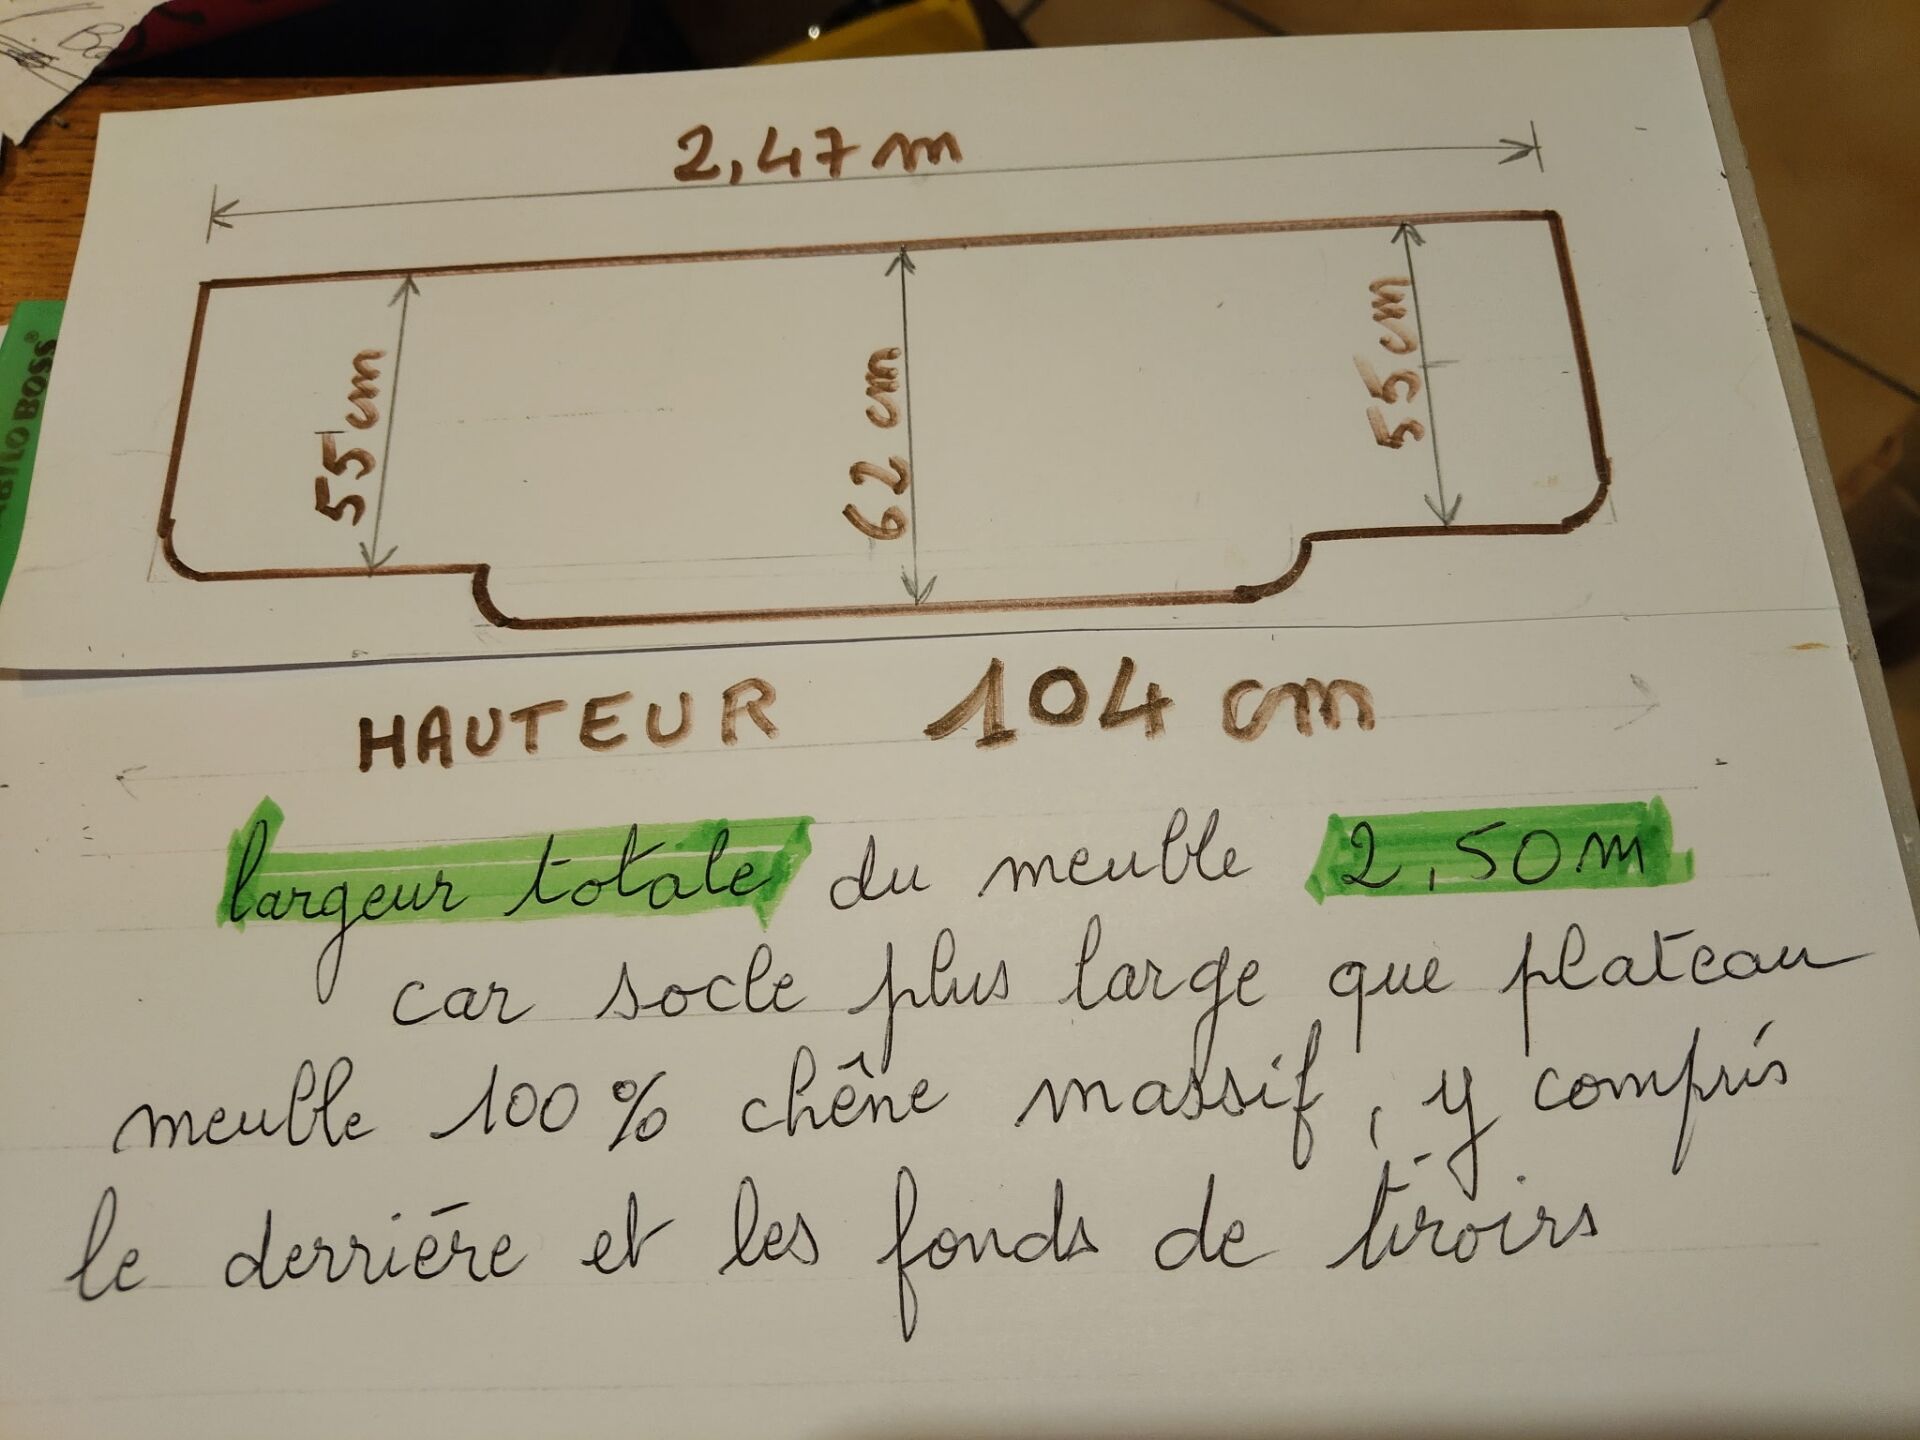 Ba
2,47 m
55 cm
62 cm
55 cm
BOSS®
HAUTEUR 104 cm
largeur totale du meuble 2,50m
car socle plus large que plateau
meuble 100 % chêne massif, y compris
le derrière et les fonds de tiroirs